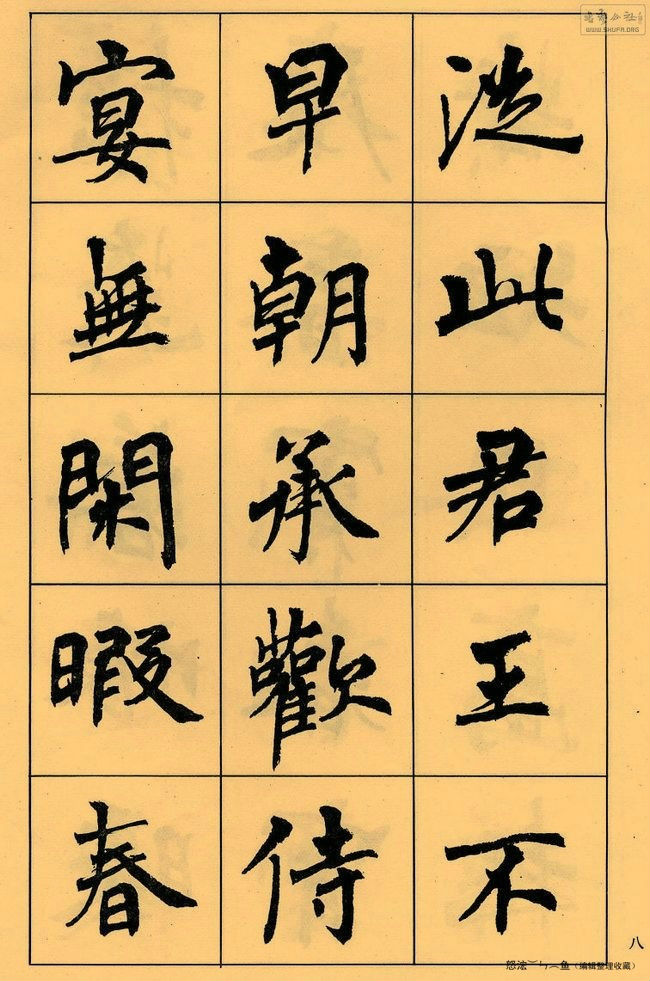 從此君王不
早朝承歡侍
宴無閑暇春
八
WWW.SHUFA.ORG
(编辑整理收藏)